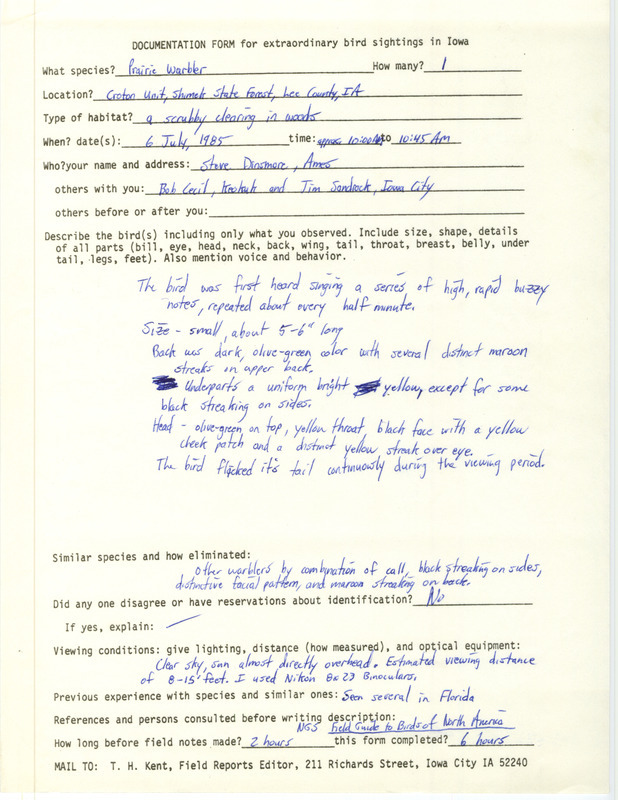 DOCUMENTATION FORM for extraordinary bird sightings in Iowa
What species? Prairie Warbler How many? 1
Location? Croton Unit, Shimek State Forest, Lee County, IA
Type of habitat? a scrubby clearing in woods
When? date(s): 6 July, 1985 time: approx 10:00AM to 10:45 AM
Who?your name and address: Steve Dinsmore, Ames
others with you: Bob Cecil, Keokuk and Jim Sandrock, Iowa City
others before or after you:
Describe the bird(s) including only what you observed. Include size, shape, details
of all parts (bill, eye, head, neck, back, wing, tail, throat, breast, belly, under
tail, legs, feet). Also mention voice and behavior.
The bird was first heard singing a series of high, rapid buzzy
notes, repeated about every half minute.
Size - small, about 5-6" long
Back was dark, olive-green color with several distinct maroon
streaks on upper back.
Underparts a uniform bright yellow, except for some
black streaking on sides.
Head - olive-green on top, yellow throat, black face with a yellow
cheek patch and a distinct yellow streak over eye.
The bird flicked it's tail continuously during the viewing period.
Similar species and how eliminated:
Other warblers by combination of call, black streaking on sides,
distinctive facial pattern, and maroon streaking on back.
Did any one disagree or have reservations about identification? No
If yes, explain: —
Viewing conditions: give lighting, distance (how measured), and optical equipment:
Clear sky, sun almost directly overhead. Estimated viewing distance
of 8-15 feet. I used Nikon 8x23 Binoculars.
Previous experience with species and similar ones: Seen several in Florida
References and persons consulted before writing description:
NGS Field Guide to Birds of North America
How long before field notes made? 2 hours this form completed? 6 hours
MAIL TO: T. H. Kent, Field Reports Editor, 211 Richards Street, Iowa City IA 52240